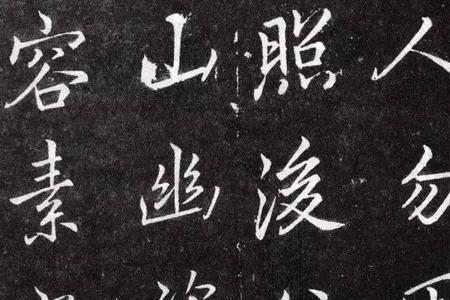 人勿
照後
山幽
容素